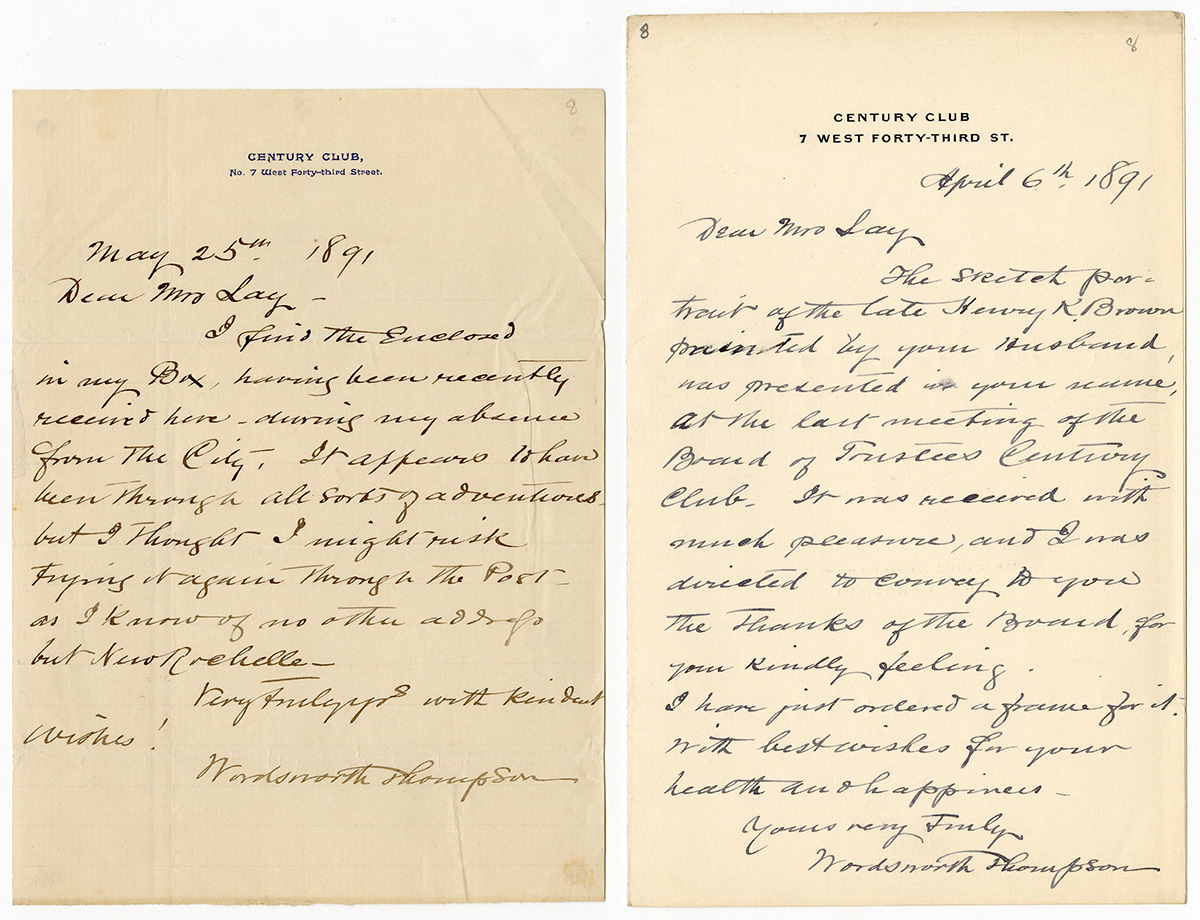 8
CENTURY CLUB,
No. 7 West Forty-third Street.
May 25th 1891
Dear Mrs Lay –
I find the Enclosed
in my Box, having been recently
received here – during my absence
from the City. It appears to have
been through all sorts of adventures
but I thought I might risk
trying it again through the Post –
as I know of no other address
but New Rochelle –
Very truly yrs with kindest
wishes!
Wordsworth Thompson
8
8
CENTURY CLUB
7 WEST FORTY-THIRD ST.
April 6th 1891
Dear Mrs Lay
The sketch por-
trait of the late Henry K. Brown
painted by your Husband,
was presented in your name,
at the last meeting of the
Board of Trustees Century
Club. It was received with
much pleasure, and I was
directed to convey to you
the thanks of the Board, for
your kindly feeling.
I have just ordered a frame for it.
With best wishes for your
health and happiness –
Yours very truly
Wordsworth Thompson